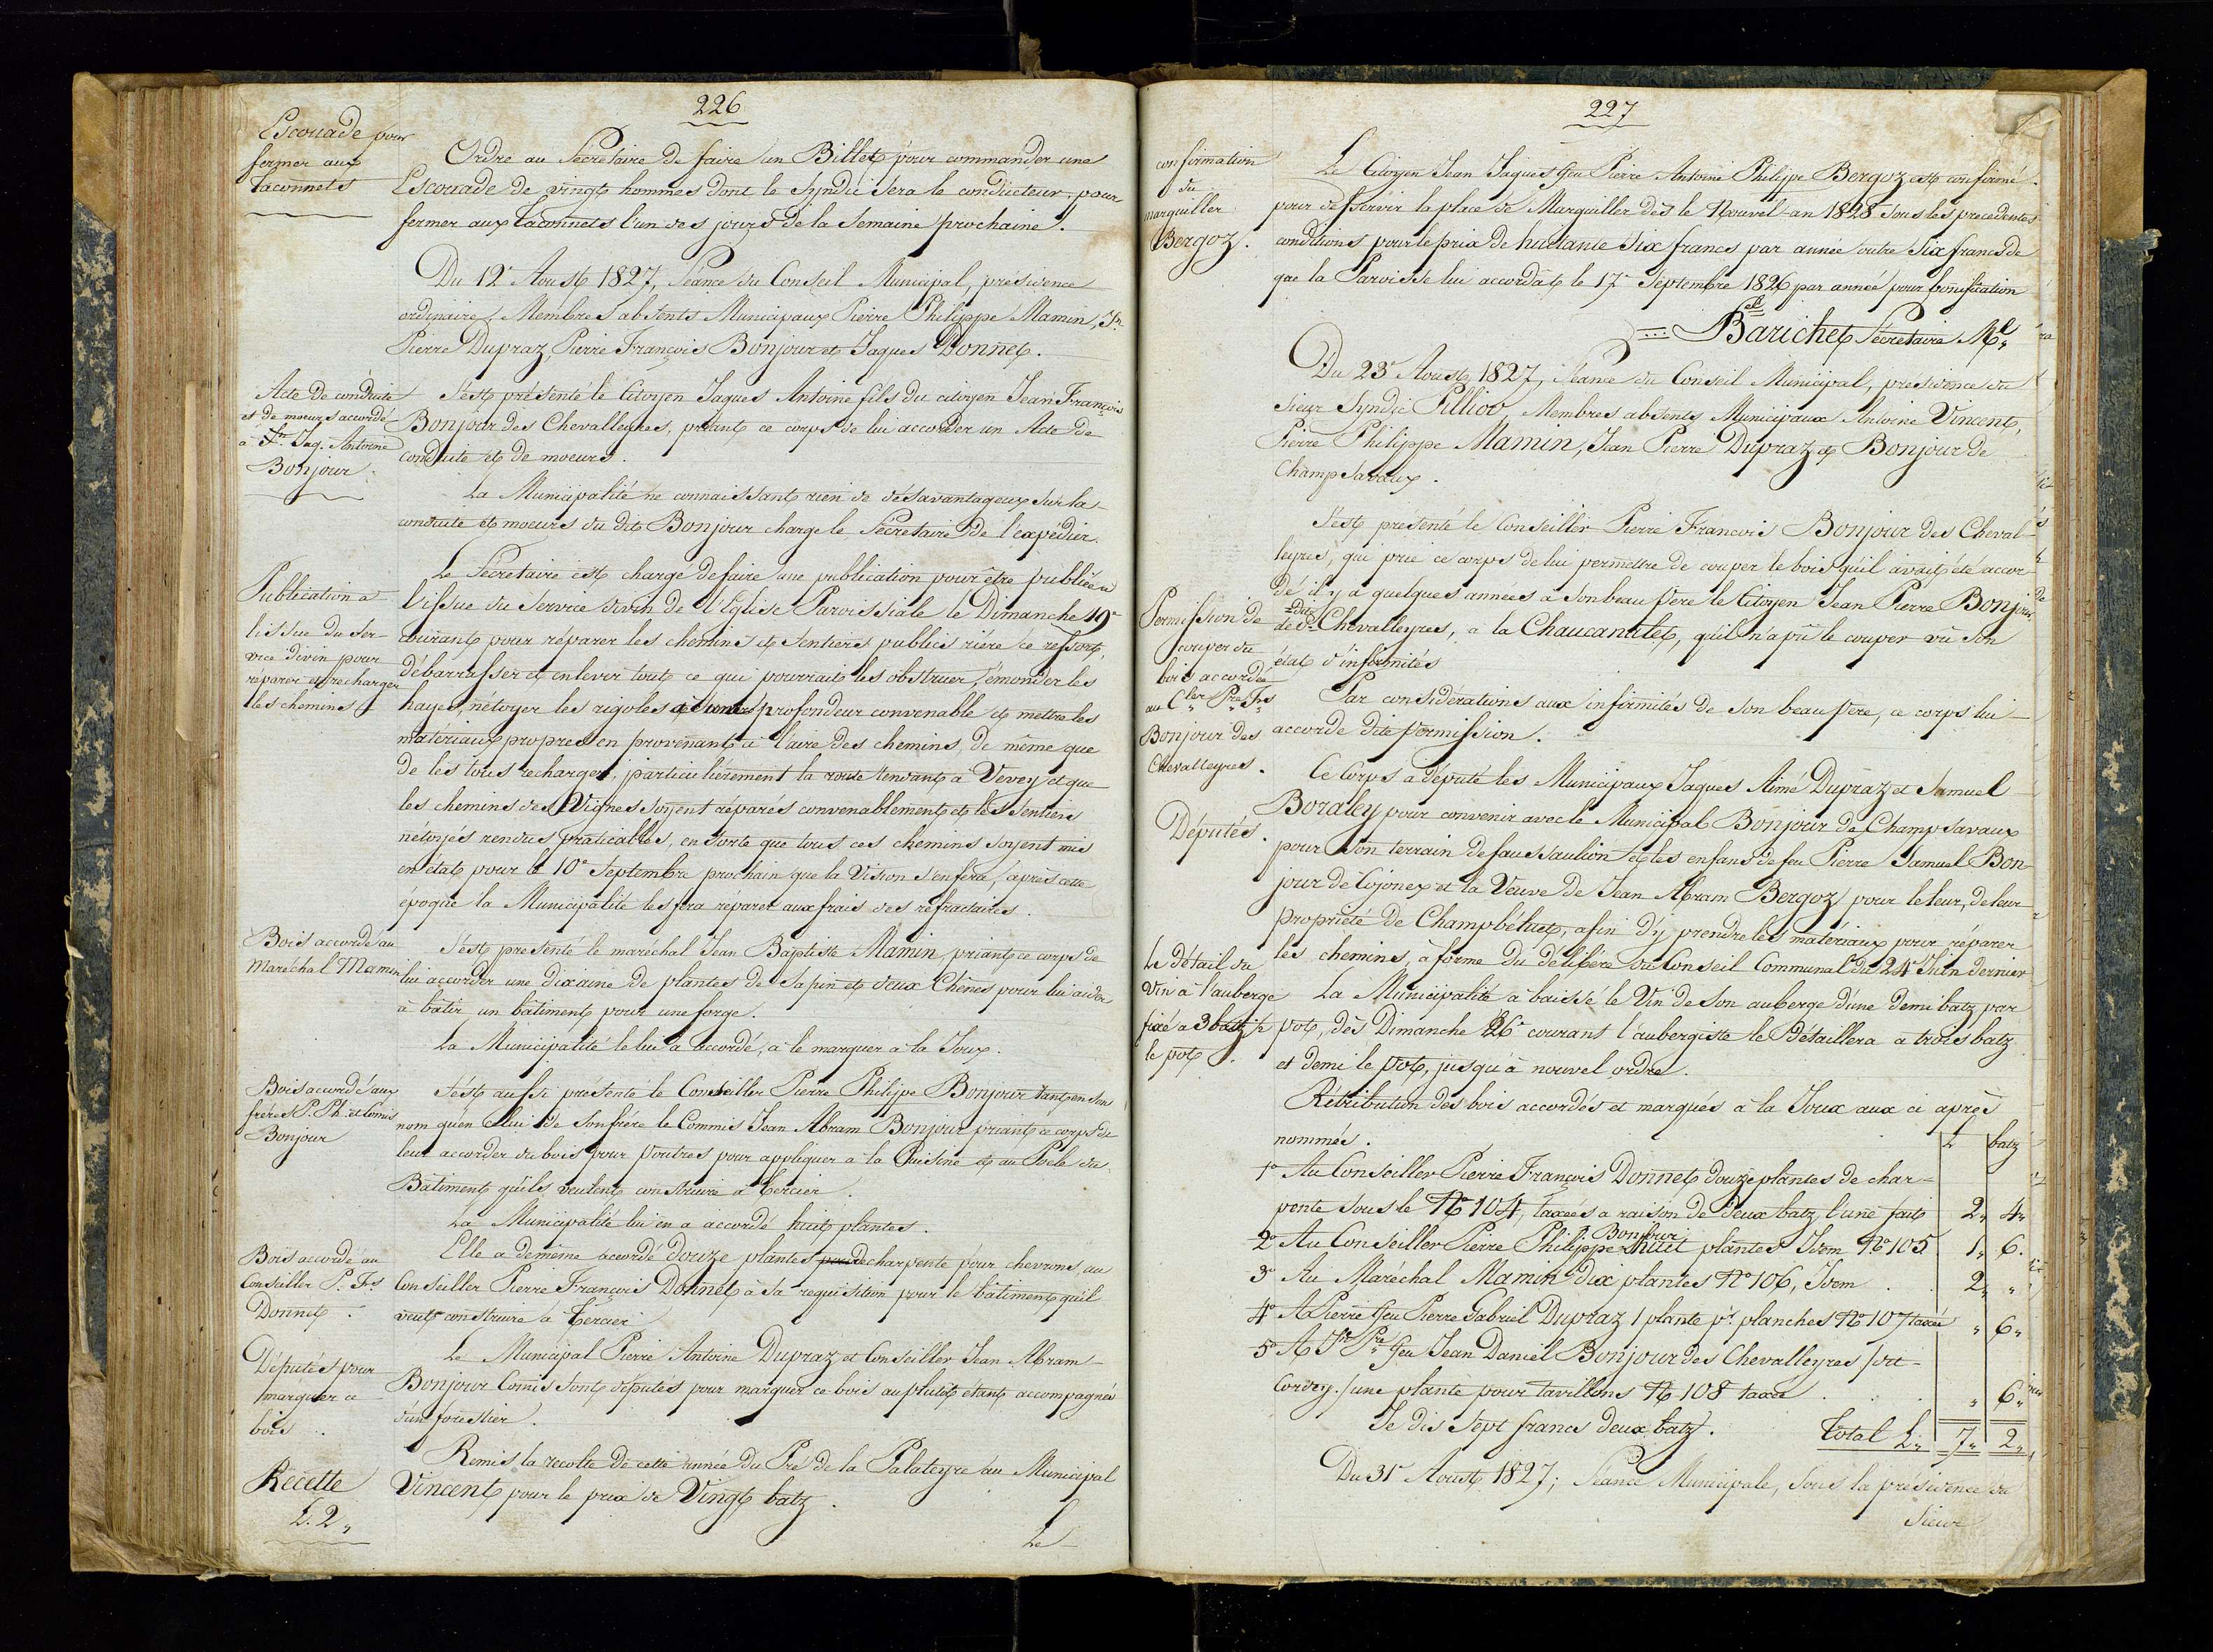 226
Escouade pour
fermer aux
Taconnets
Ordre au Secrétaire de faire un Billet pour commander une
Escouade de vingt hommes dont le Syndic sera le conducteur, pour
fermer aux Taconnets l'un des jours de la Semaine prochaine.
Du 12e Aoust 1827, Séance du Conseil Municipal, présidence
ordinaire, Membres absents Municipaux Pierre Philippe Mamin, Jn
Pierre Dupraz, Pierre François Bonjour et Jaques Donnet.
Acte de conduite
et de moeurs accordé
à Jaq. Antoine
Bonjour.
S'est présenté le Citoyen Jaques Antoine fils du citoyen Jean François
Bonjour des Chevalleyres, priant ce corps de lui accorder un Acte de
conduite et de moeurs.
La Municipalité ne connaissant rien de désavantageux sur la
conduite et moeurs du dit Bonjour charge le Secrétaire de l'expédier.
Publication à
l'issue du Ser-
vice divin pour
réparer et recharger
les chemins
Le Secretaire est chargé de faire une publication pour être publiée à
l'issue du Service divin de l'Eglise Paroissiale le Dimanche 19e
courant pour réparer les chemins et sentiers publics rière ce ressort,
débarrasser et enlever tout ce qui pourrait les obstruer, émonder les
hayes, nétoyer les rigoles à une profondeur convenable et mettre les
matériaux propres en provenant à l'aire des chemins, de même que
de les tous recharger, particulièrement la route tendant à Vevey et que
les chemins des Vignes soyent réparés convenablement et les sentiers
nétoyés rendus praticables, en sorte que tous ces chemins soyent mis
en état pour le 10e Septembre prochain que la Vision s'en fera, après cette
époque la Municipalité les fera réparer aux frais des réfractaires.
Bois accordé au
Maréchal Mamin
S'est présenté le maréchal Jean Baptiste Mamin, priant ce corps de
lui accorder une dixaine de plantes de Sapin et deux Chênes pour lui aider
à bâtir un bâtiment pour une forge.
La Municipalité le lui a accordé, à le marquer à la Joux.
Bois accordé aux
frères P. Ph. et Comis
Bonjour
S'est aussi présenté le Conseiller Pierre Philippe Bonjour tant en son
nom qu'en celui de son frère le Commis Jean Abram Bonjour priant ce corps de
leur accorder du bois pour Poutres pour appliquer à la Cuisine et au Poele du
Bâtiment qu'ils veulent construire à Tercier.
La Municipalité lui en a accordé huit plantes.
Bois accordé au
Conseiller P. Fs
Donnet.
Elle a demême accordé douze plantes de charpente pour chevrons au
Conseiller Pierre François Donnet à sa requisition pour le bâtiment qu'il
veut construire à Tercier
Députés pour
marquer ce
bois.
Le Municipal Pierre Antoine Dupraz et Conseiller Jean Abram
Bonjour Comis sont députés pour marquer ce bois au plutôt etant accompagnés
d'un forestier.
Recette
L. 2 "
Remis la recolte de cette année du Pré de la Palateyre au Municipal
Vincent pour le prix de Vingt batz.
Le
227
confirmation
du
marguiller
Bergoz.
Le Citoyen Jean Jaques feu Pierre Antoine Philippe Bergoz est confirmé
pour desservir la place de Marguiller dès le Nouvel-an 1828 sous les precedentes
conditions pour le prix de huitante six francs par année outre Six francs de
que la Paroisse lui accordât le 17e Septembre 1826 par année pour bonification
Barichet Secretaire Ml
Du 23e Aoust 1827, Séance du Conseil Municipal, présidence du
Sieur Syndic Pilliod, Membres absents Municipaux Antoine Vincent,
Pierre Philippe Mamin, Jean Pierre Dupraz et Bonjour de
Champsavaux.
Permission de
couper du
bois accordée
au Cler Pre Fs
Bonjour des
Chevalleyres.
S'est présenté le Conseiller Pierre François Bonjour des Cheval-
leyres, qui prie ce corps de lui permettre de couper le bois qu'il avait été accor-
dé il y a quelques années à son beau Père le Citoyen Jean Pierre Bonjour
des dits Chevalleyres, à la Chaucantitet, qu'il n'a pû le couper vu son
état d'infirmités
Par considérations aux infirmités de son beau Père, ce corps lui
accorde dite permission.
Députés.
Ce Corps a député les Municipaux Jaques Aimé Dupraz et Samuel
Boraley pour convenir avec le Municipal Bonjour de Champsavaux
pour son terrain de faussaulion et les enfans de feu Pierre Samuel Bon-
jour de Cojonex et la Veuve de Jean Abram Bergoz pour le leur, de leur
propriété de Champbéluet, afin d'y prendre les matériaux pour réparer
les chemins, à forme du délibéré du Conseil Communal du 24e Juin dernier
Le détail du
Vin à l'auberge
fixé à 3 batz ½
le pot.
La Municipalité a baissé le Vin de son auberge d'une demi batz par
pot, dès Dimanche 26e courant l'aubergiste le Détaillera à trois batz
et demi le Pot, jusqu'à nouvel ordre.
Rétribution des bois accordés et marqués à la Joux aux ci après
nommés.
L batz
1o Au Conseiller Pierre François Donnet douze plantes de char-
pente sous le No 104, taxées à raison de deux batz l'une fait 2 " 4 "
2o Au Conseiller Pierre Philippe Bonjour huit plantes Idem No 105 1 " 6.
3o Au Maréchal Mamin dix plantes No 106, Idem 2 " "
4o A Pierre feu Pierre Gabriel Dupraz 1 plante pr planches No 107 taxée " 6 "
5o A Jn Pre feu Jean Daniel Bonjour des Chevalleyres /dit
Cordey./ une plante pour tavillons No 108 taxée " 6 "
Je dis sept francs deux batz. Total L. 7 " 2 "
Du 31e Aoust 1827; Séance Municipale, sous la présidence du
Sieur